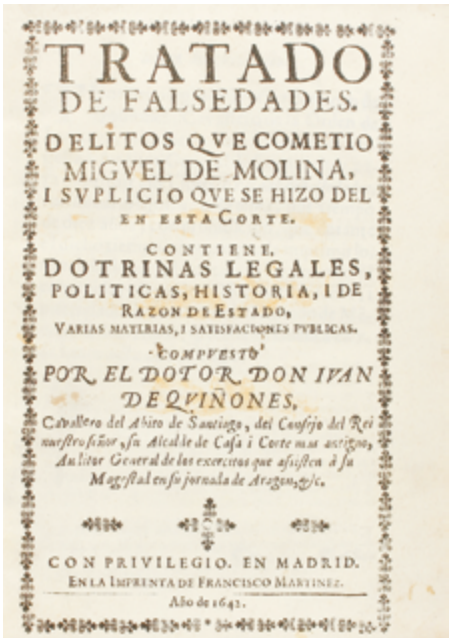 TRATADO
DE FALSEDADES.
DELITOS QVE COMETIO
MIGVEL DE MOLINA,
I SVPLICIO QVE SE HIZO DEL
EN ESTA CORTE.
CONTIENE.
DOTRINAS LEGALES,
POLITICAS, HISTORIA, I DE
RAZON DE ESTADO,
VARIAS MATERIAS, I SATISFACIONES PVBLICAS.
COMPVESTO
POR EL DOTOR DON IVAN
DE QVIÑONES,
Cavallero del Abito de Santiago, del Consejo del Rei
nuestro señor, su Alcalde de Casa i Corte mas antiguo,
Auditor General de los exercitos que assisten à su
Magestad en su jornada de Aragon, &c.
CON PRIVILEGIO. EN MADRID.
EN LA IMPRENTA DE FRANCISCO MARTINEZ.
Año de 1642.